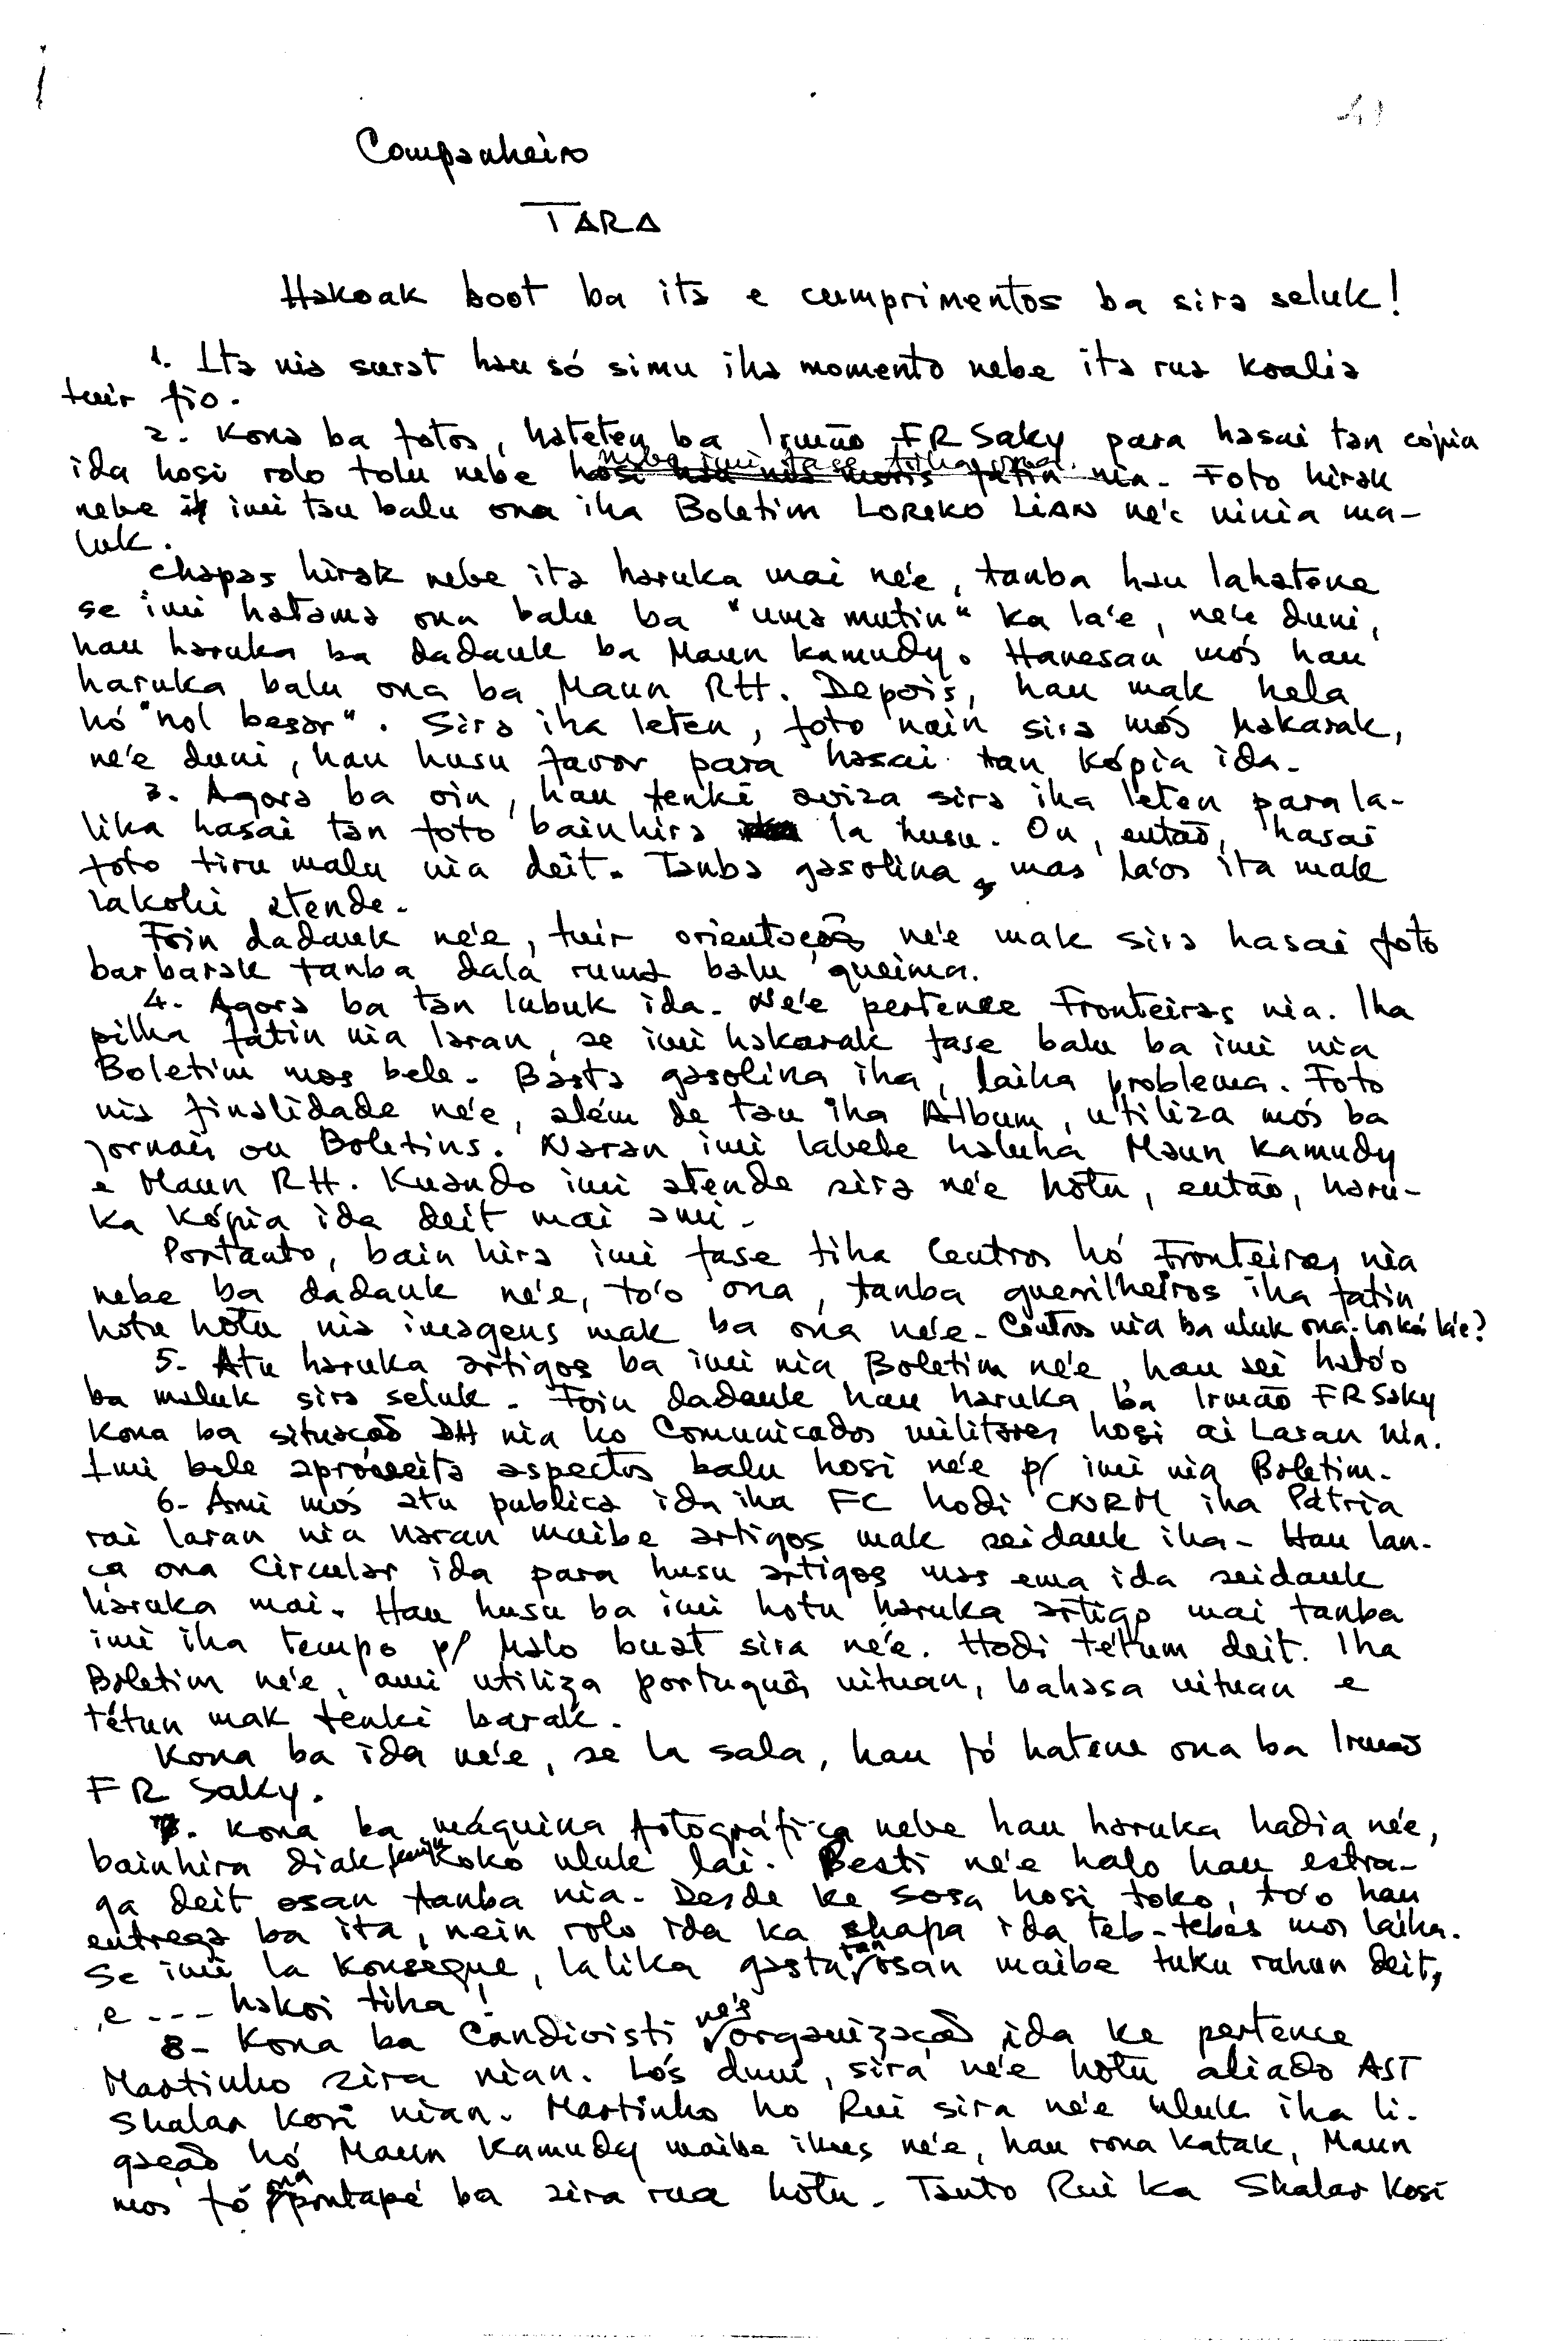 Companheiro
TARA
Hakoak boot ba ita e cumprimentos ba sira seluk!
1. Ita nia surat hau só simu iha momento nebe ita rua koalia
tuir fio.
2. Kona ba fotos, hateten ba Irmão FR Saky para hasai tan cópia
nebe imi fase tiha ona.
ida hosi rolo tolu nebe hosi hau nia moris fatin nia. Foto hirak
nebe imi tau balu ona iha Boletim LORIKO LIAN ne'e ninia ma-
luk.
Chapas hirak nebe ita haruka mai ne'e, tanba hau lahatene
se imi hatama ona balu ba "uma mutin" ka la'e, ne'e duni,
hau haruka ba dadauk ba Maun Kamudy. Hanesan mós hau
haruka balu ona ba Maun RH. Depois, hau mak hela
hó "nol besar". Sira iha leten, foto nain sira mós hakarak,
ne'e duni, hau husu favor para hasai tan kópia ida.
3. Agora ba oin, hau tenki aviza sira iha leten para la-
lika hasai tan foto bainhira la husu. Ou, então, hasai
foto tiru malu nia deit. Tanba gasolina, mas la'os ita mak
lakohi atende.
Foin dadauk ne'e, tuir orientação ne'e mak sira hasai foto
barbarak tanba dala ruma balu queima.
4. Agora ba tan lubuk ida. Ne'e pertence Fronteiras nia. Iha
pilha fatin nia laran, se imi hakarak fase balu ba imi nia
Boletim mos bele. Basta gasolina iha, laiha problema. Foto
nia finalidade ne'e, além de tau iha Album, utiliza mós ba
jornais ou Boletins. Naran imi labele haluha Maun Kamudy
e Maun RH. Kuando imi atende sira ne'e hotu, então, haru-
ka kópia ida deit mai ami.
Portanto, bain hira imi fase tiha Centros hó Fronteiras nia
nebe ba dadauk ne'e, to'o ona, tanba guerrilheiros iha fatin
hotu hotu nia imagens mak ba ona ne'e. Centros nia ba uluk ona. Los ká la'e?
5. Atu haruka artigos ba imi nia Boletim ne'e, hau sei hato'o
ba maluk sira seluk. Foin dadauk hau haruka ba Irmão FR Saky
Kona ba situação DH nia ho Comunicados militares hosi ai Laran nia.
Imi bele aproveita aspectos balu hosi ne'e p/ imi nia Boletim.
6- Ami mós atu publica ida iha FC hodi CNRM iha Pátria
rai laran nia naran maibe artigos mak seidauk iha. Hau lan-
ça ona Circular ida para husu artigos mas ema ida seidauk
haruka mai. Hau husu ba imi hotu haruka artigo mai tanba
imi iha tempo p/ halo buat sira ne'e. Hodi tétum deit. Iha
Boletim ne'e, ami utiliza português nituan, bahasa nituan e
tétun mak tenki barak.
Kona ba ida ne'e, se la sala, hau fó hatene ona ba Irmão
FR Saky.
7. Kona ba máquina fotográfica nebe hau haruka hadia ne'e,
bainhira diak koko uluk lai. Besti ne'e halo hau estra-
ga deit osan tanba nia. Desde ke sosa hosi toko, to'o hau
entrega ba ita, nein rolo ida ka shapa ida teb-tebes mos laiha.
Se imi la konsegue, lalika gasta tan osan maibe tuku rahun deit,
e --- hakoi tiha!
8- Kona ba Candivisti ne'e organização ida ke pertence
Martinho sira nian. Lós duni, sira ne'e hotu aliado AST
Skalar Kosi nian. Martinho ho Rui sira ne'e uluk iha li-
gação hó Maun Kamudy maibe ikus ne'e, hau rona katak, Maun
mos fó ona pontapé ba sira rua hotu. Tanto Rui ka Skalar Kosi